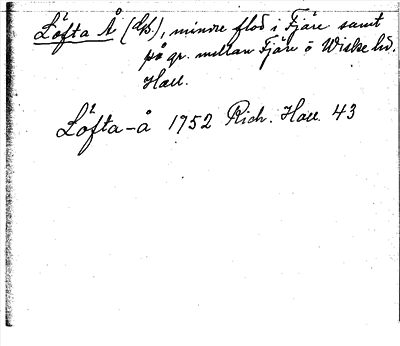 Löfta Å (Gs.), mindre flod i Fjäre samt
på gr. mellan Fjäre o Wiske hd.
Hall.
Löfta-å 1752 Rich. Hall. 43